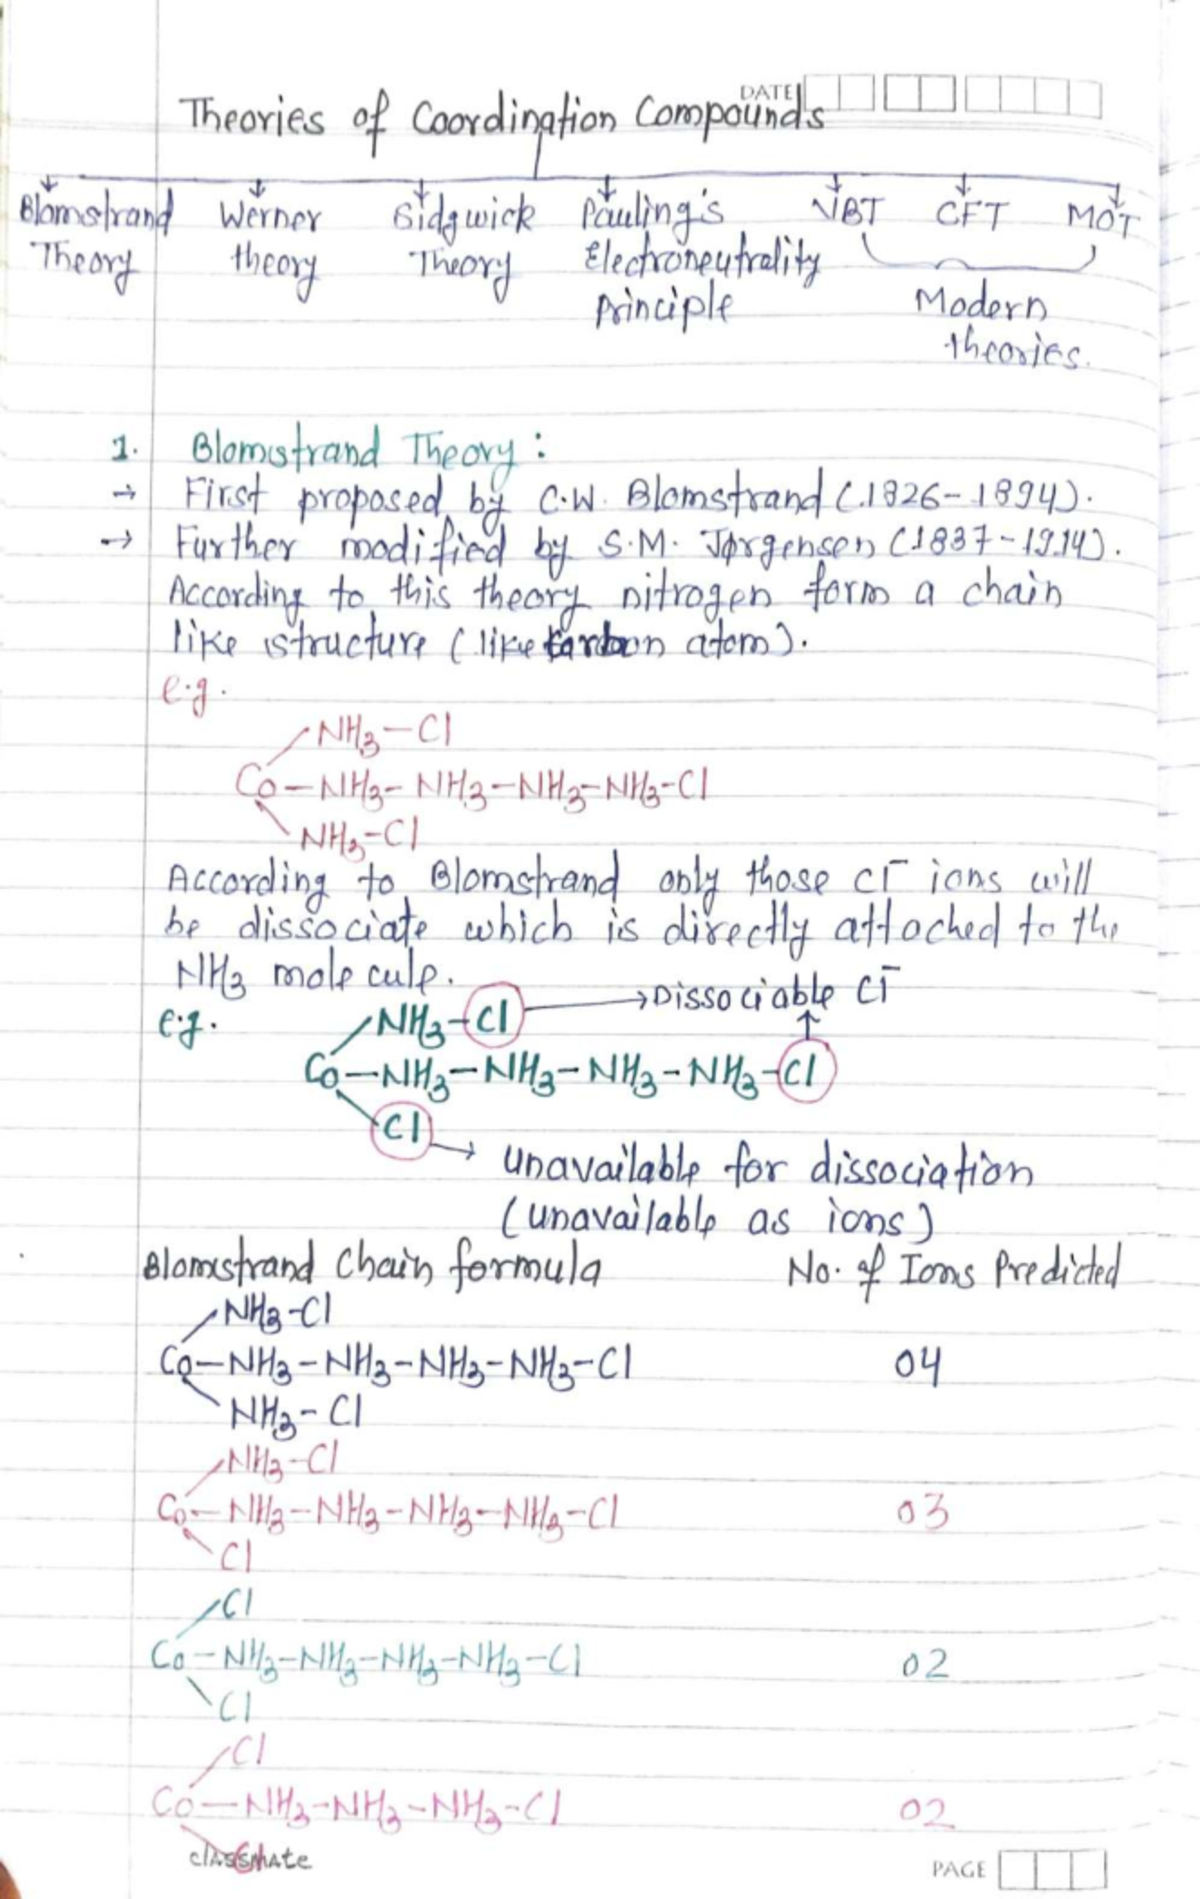 DATE
Theories of Coordination Compounds
Blomstrand Theory
Werner theory
Sidgwick Theory
Pauling's Electroneutrality Principle
VBT
CFT
MOT
Modern theories.
1. Blomstrand Theory :
→ First proposed by C.W. Blomstrand (1826-1894).
→ Further modified by S.M. Jørgensen (1837-1914).
According to this theory nitrogen form a chain
like structure (like carbon atom).
e.g.
NH₃-Cl
Co-NH₃-NH₃-NH₃-NH₃-Cl
NH₃-Cl
According to Blomstrand only those Cl⁻ ions will
be dissociate which is directly attached to the
NH₃ molecule.
→Dissociable Cl⁻
e.g.
NH₃-Cl
Co-NH₃-NH₃-NH₃-NH₃-Cl
Cl
→ Unavailable for dissociation
(unavailable as ions)
Blomstrand Chain formula No. of Ions Predicted
NH₃-Cl
Co-NH₃-NH₃-NH₃-NH₃-Cl 04
NH₃-Cl
NH₃-Cl
Co-NH₃-NH₃-NH₃-NH₃-Cl 03
Cl
Cl
Co-NH₃-NH₃-NH₃-NH₃-Cl 02
Cl
Cl
Co-NH₃-NH₃-NH₃-Cl 02
Cl
classmate
PAGE